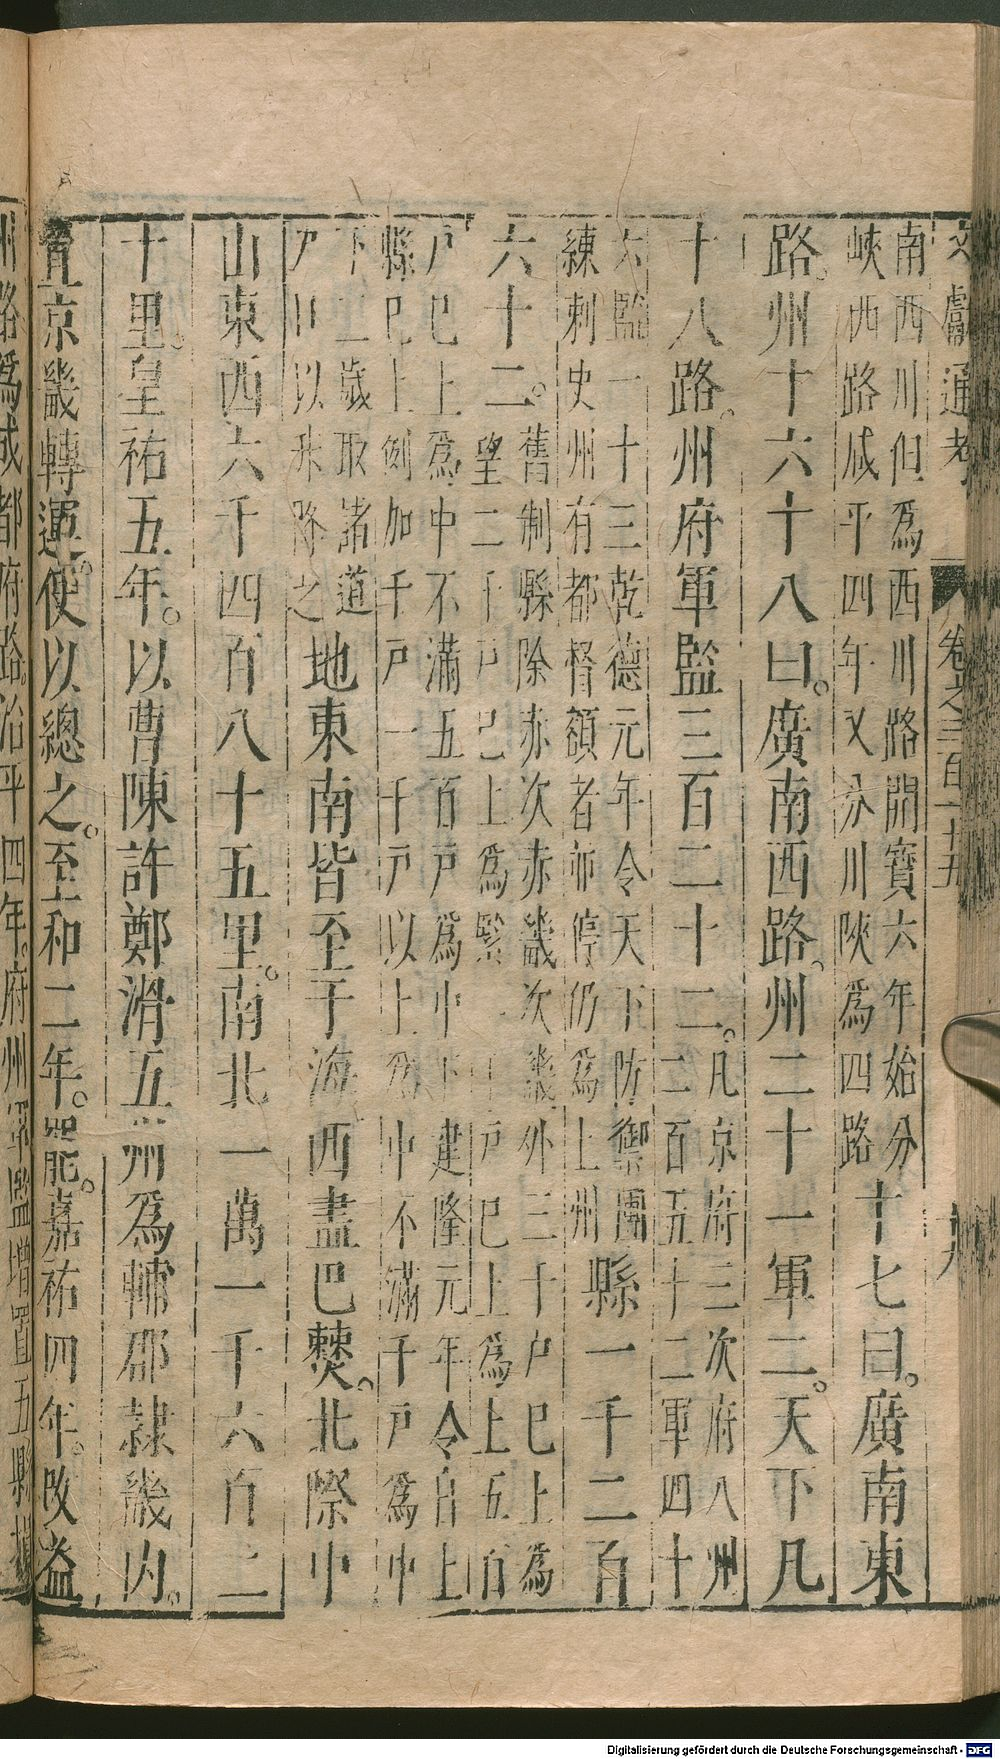 文獻通考 卷之三百十五
南西川但爲西川路開寶六年始分
峽西路咸平四年又分川陝爲四路
十七曰。廣南東
路。州十六十八曰。廣南西路。州二十一軍二。天下凡
十八路。州府軍監三百二十二。
凡京府三次府八州
二百五十二軍四十
六監一十三乾德元年令天下防禦團
練刺史州有都督額者並停仍爲上州
縣一千二百
六十二。
舊制縣除赤次赤畿次畿外三十户巳上爲
望二千戸巳上爲緊一千戸巳上爲上五百
戸巳上爲中不滿五百戸爲中下建隆元年令自上
縣巳上例加千戸一千戸以上爲中不滿千戸爲中
下二歲取諸道
戸口以升降之
地東南皆至于海西盡巴僰。北際中
山東西六千四百八十五里。南北一萬一千六百二
十里。皇祐五年。以曹陳許鄭滑五州爲輔郡隸畿内。
置京畿轉運使以總之。至和二年。罷。嘉祐四年。改益
州路爲成都府路。治平四年。府州軍監增置五縣
Digitalisierung gefördert durch die Deutsche Forschungsgemeinschaft - DFG